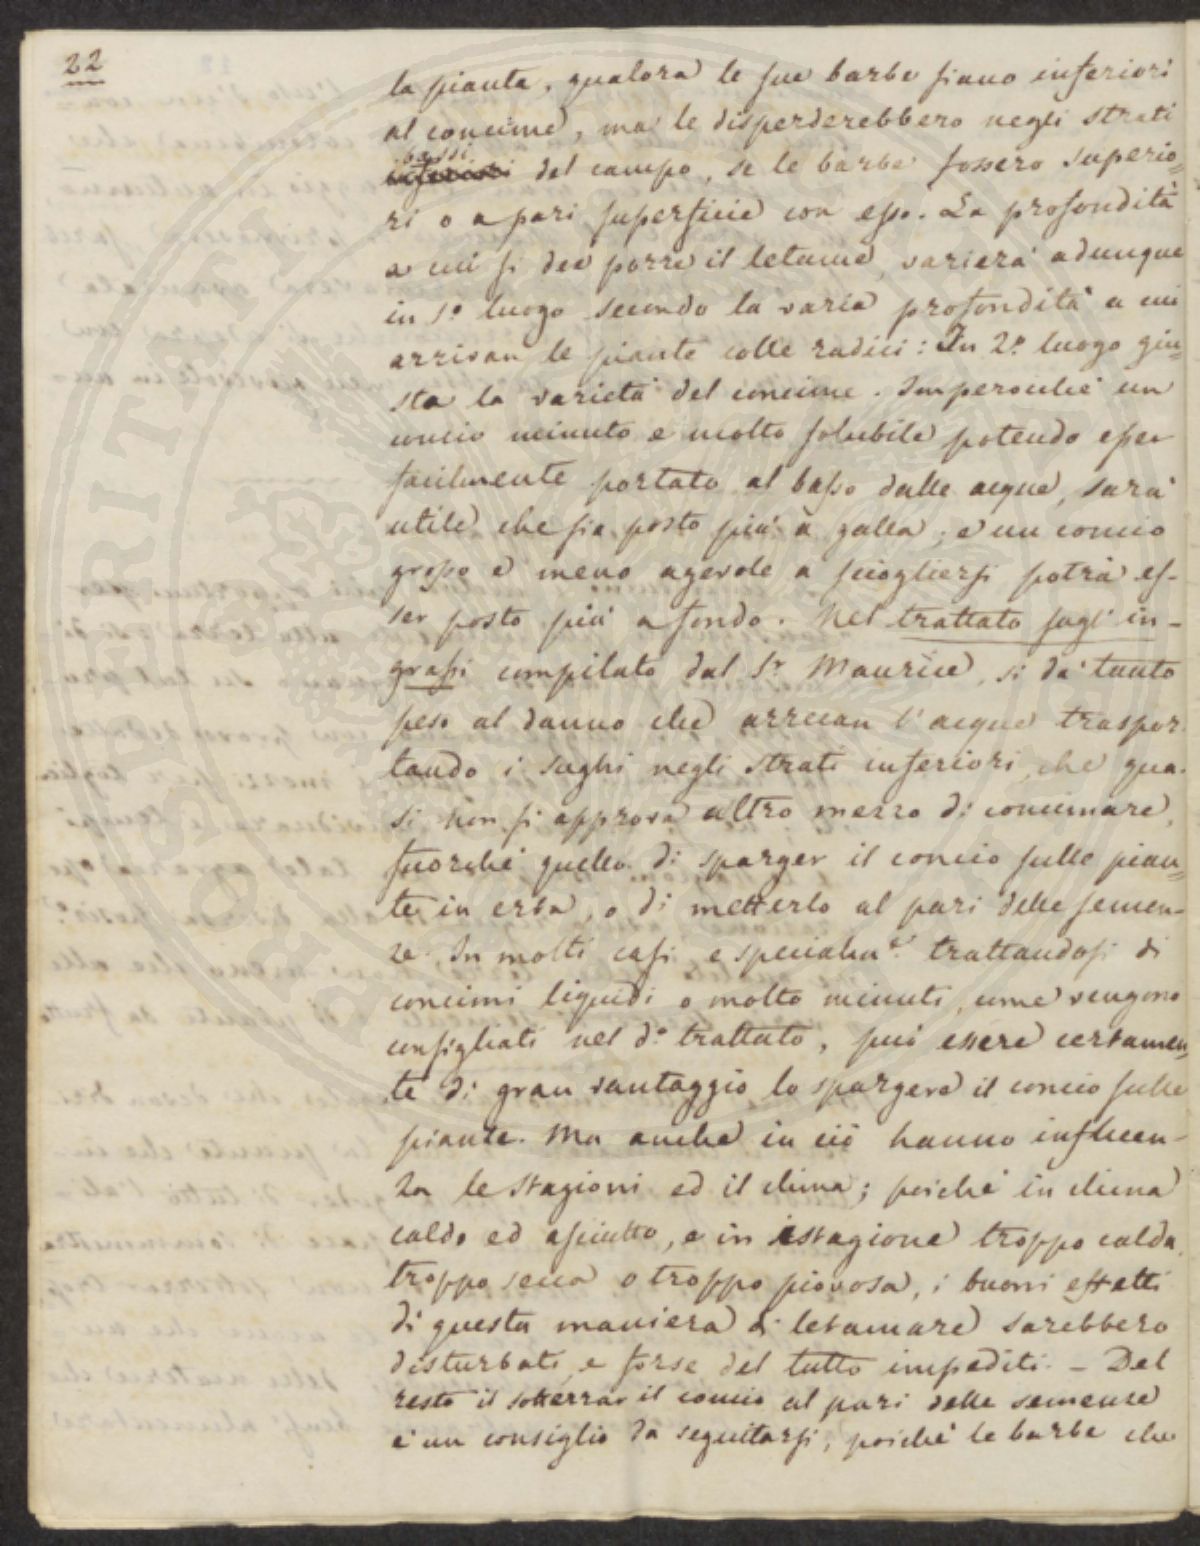 22
la pianta, qualora le sue barbe siano inferiori
al concime, ma le disperderebbero negli strati
bassi
inferiori del campo, se le barbe fossero superio=
ri o a pari superficie con esso. La profondità
a cui si dee porre il letame, varierà adunque
in 1º luogo secondo la varia profondità a cui
arrivan le piante colle radici: In 2º luogo giu=
sta la varietà del concime. Imperocchè un
concio minuto e molto solubile potendo esser
facilmente portato al basso dalle acque, sarà
utile che sia posto più a galla; e un concio
grosso e meno agevole a sciogliersi potrà es-
ser posto più a fondo. Nel trattato sugl'in-
grassi compilato dal Sr Maurice, si dà tanto
peso al danno che arrecan l'acque traspor
tando i sughi negli strati inferiori, che qua-
si non si approva altro mezzo di concimare,
fuorchè quello di sparger il concio sulle pian=
te in erba, o di metterlo al pari delle semen-
ze. In molti casi e specialme trattandosi di
concimi liquidi o molto minuti, come vengono
consigliati nel do trattato, può essere certamen=
te di gran vantaggio lo spargere il concio sulle
piante. Ma anche in ciò hanno influen-
za le stagioni ed il clima; poichè in clima
caldo ed asciutto, e in istagione troppo calda,
troppo secca o troppo piovosa, i buoni effetti
di questa maniera di letamare sarebbero
disturbati e forse del tutto impediti. - Del
resto il sotterrar il concio al pari delle semenze
è un consiglio da seguitarsi, poichè le barbe che
PROPRITATI